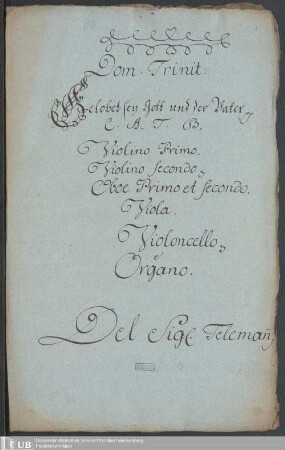 Dom. Trinit:
Gelobet sey Gott und der Vater,
C. A. T. B.
Violino Primo.
Violino Secondo,
Oboe Primo et Secondo.
Viola.
Violoncello,
è
Organo.
Del Sigl Teleman̄
UB
Frankfurt am Main